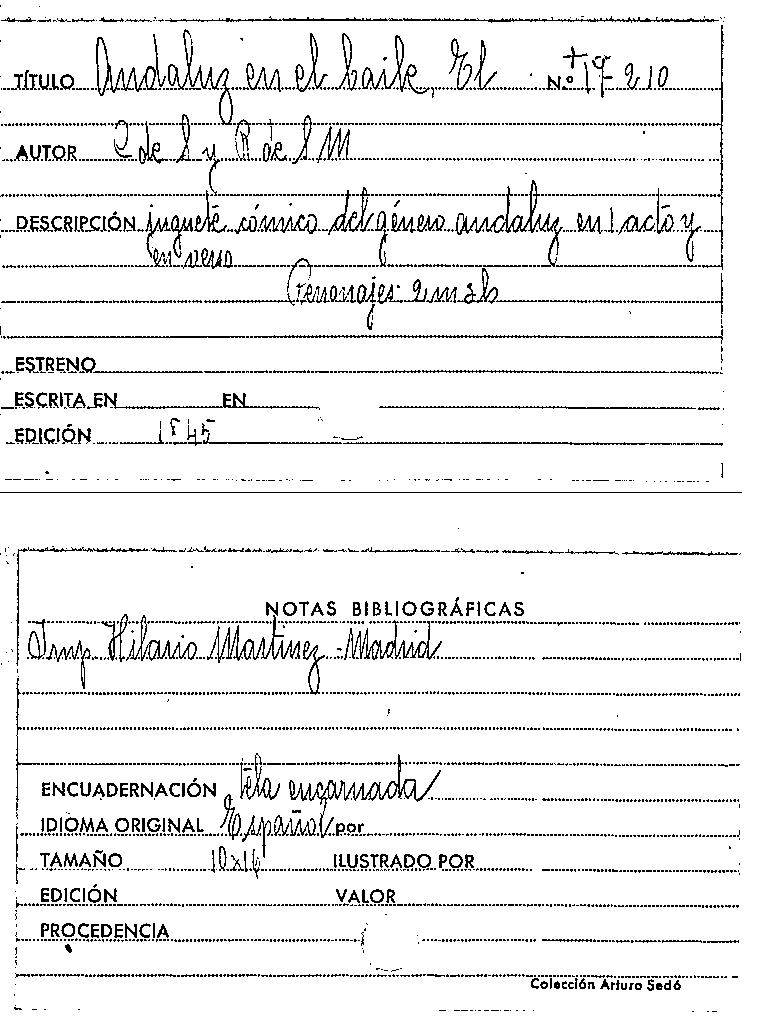 TÍTULO Andaluz en el baile, El N.º 19-210
AUTOR C de S y R de S M
DESCRIPCIÓN juguete cómico del género andaluz en 1 acto y
en verso
Personajes: 2 m 3 h
ESTRENO
ESCRITA EN EN
EDICIÓN 1845
NOTAS BIBLIOGRÁFICAS
Imp. Hilario Martinez - Madrid
ENCUADERNACIÓN tela encarnada
IDIOMA ORIGINAL Español por
TAMAÑO 10x16 ILUSTRADO POR
EDICIÓN VALOR
PROCEDENCIA
Colección Arturo Sedó